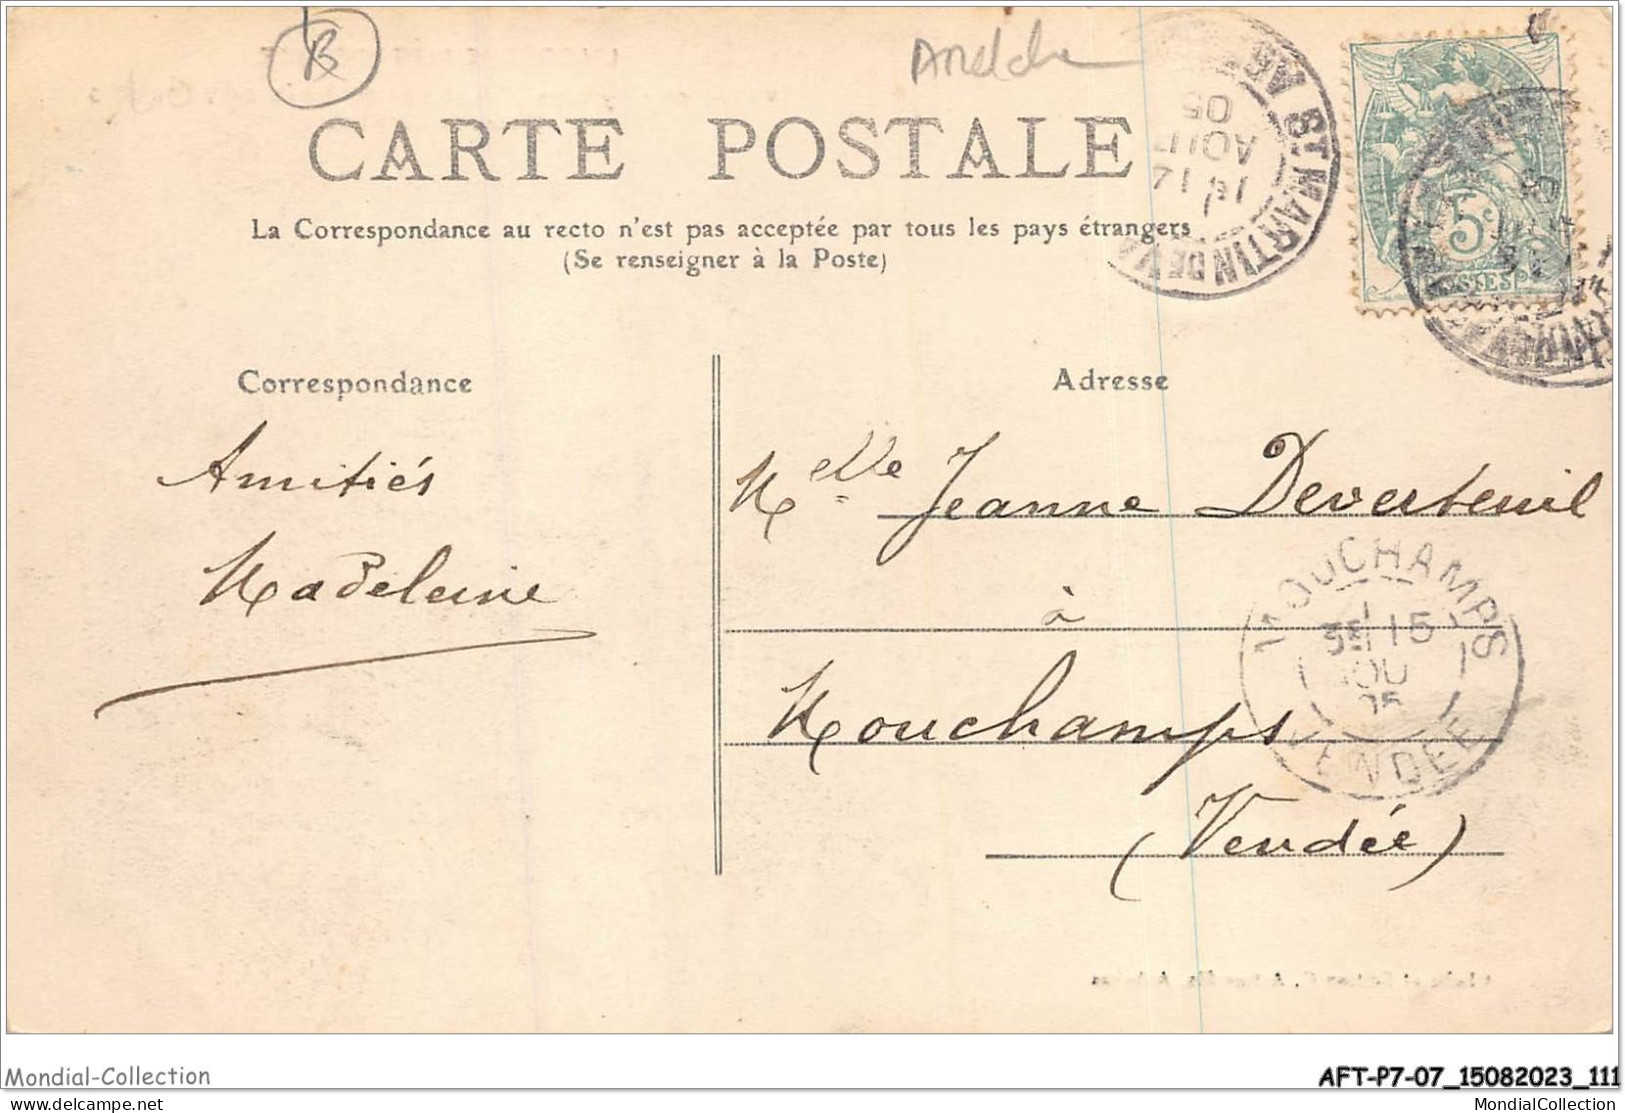 B
CARTE POSTALE
La Correspondance au recto n'est pas acceptée par tous les pays étrangers
(Se renseigner à la Poste)
ST MARTIN DE
AOUT
05
5c
POSTES
Correspondance
Amitiés
Madeleine
Adresse
Melle Jeanne Deverteuil
à
Mouchamps
(Vendée)
MOUCHAMPS
15
VENDÉE
Mondial-Collection
AFT-P7-07_15082023_111
delcampe.net
MondialCollection